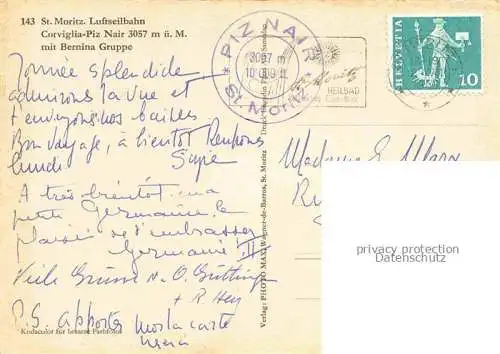 143 St. Moritz. Luftseilbahn
Corviglia-Piz Nair 3057 m ü. M.
mit Bernina Gruppe
PIZ NAIR
3057 m
10 000 ft.
St. Moritz
St. Moritz
HEILBAD
HELVETIA
10
Journée splendide
admirons la vue et
t'envoyons nos
Bon voyage, à bientôt
lundi
A très bientôt ma
petite Germaine, le
plaisir de t'embrasser
Germaine III
Viele Grüsse v. O.
+ R. Hey
P.S. apporter moi la carte
merci
Kodacolor für bessere Farbfotos
Verlag: PHOTO MAX, Wagner-de-Barros, St. Moritz
Madame E. Marx
privacy protection
DATENSCHUTZ